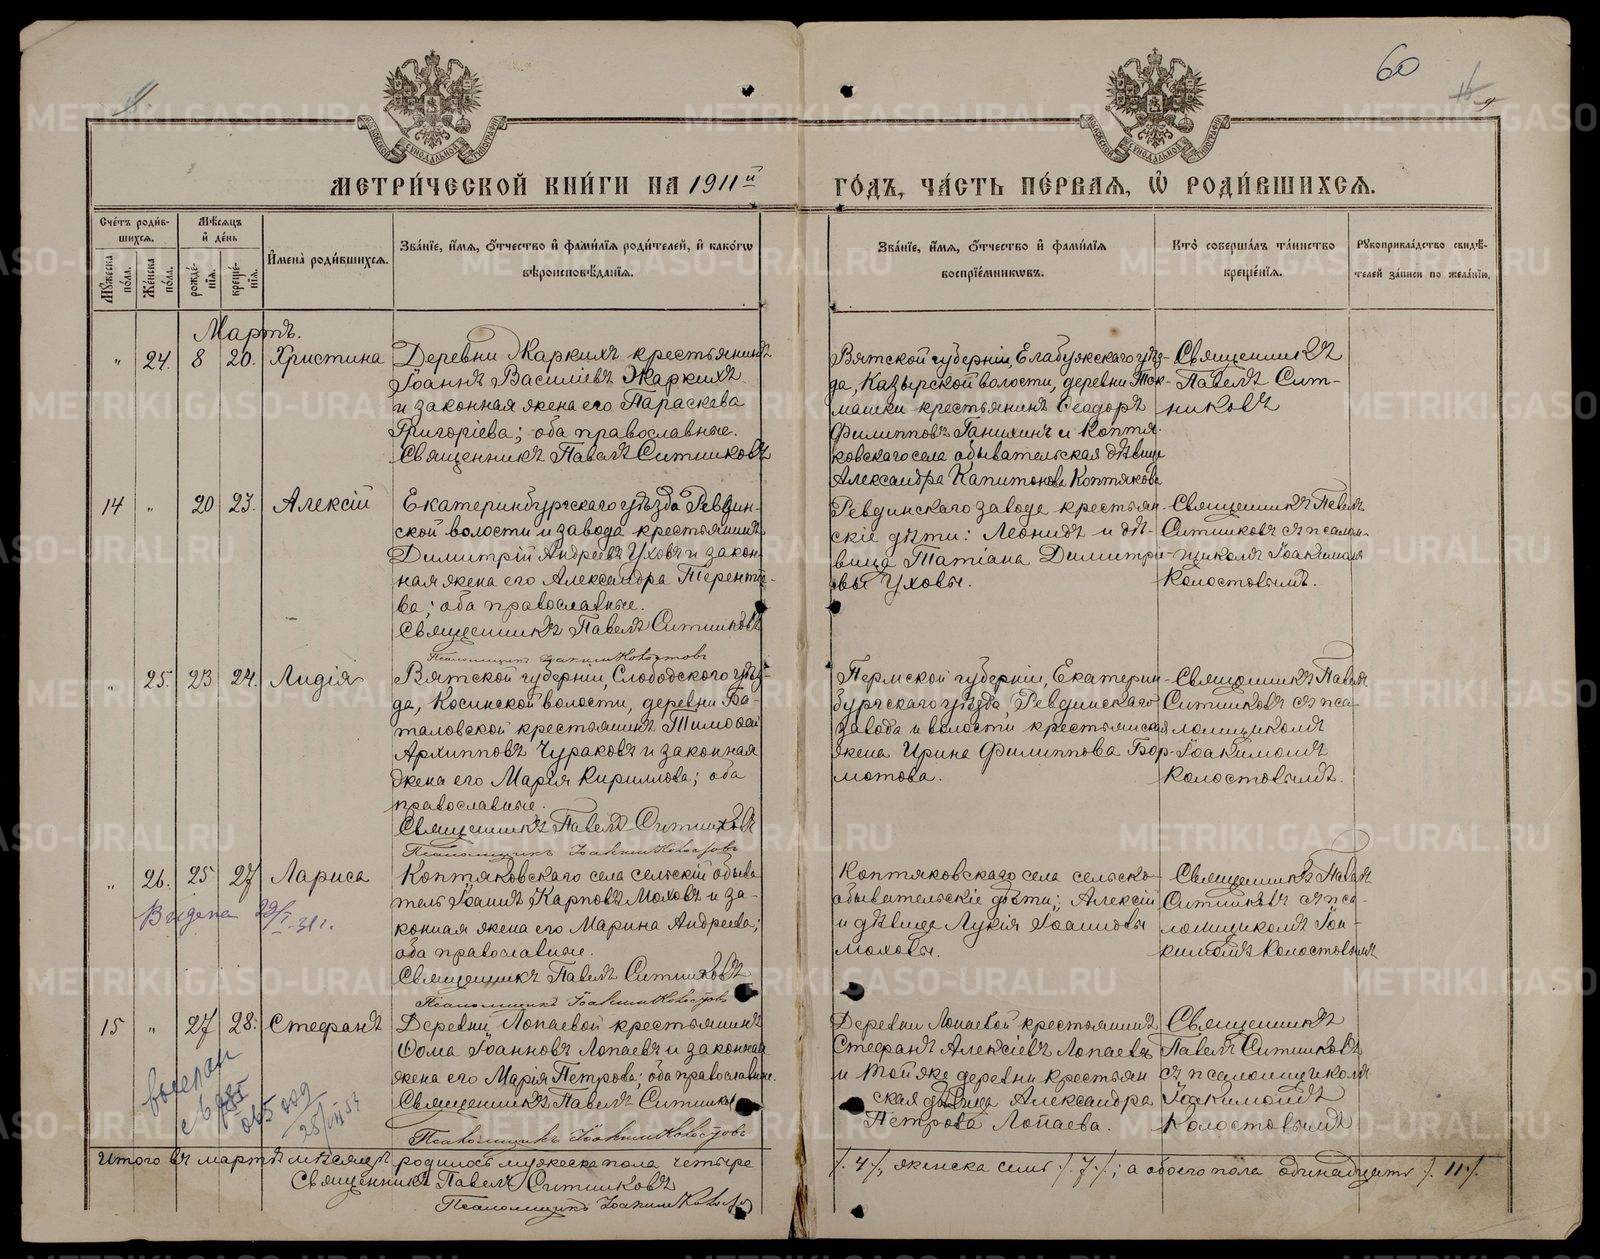 60
16
МЕТРИ́ЧЕСКОЙ КНИ́ГИ НА 1911й ГО́ДЪ, ЧА́СТЬ ПЕ́РВАЯ, Ѡ РОДИ́ВШИХСЯ.
Сче́тъ роди́вшихся.
Мѣ́сяцъ и де́нь
Мꙋ́жеска по́ла.
Же́нска по́ла.
рожде́нїя.
креще́нїя.
Имена̀ роди́вшихся.
Зва́нїе, и́мя, о́тчество и фами́лїя роди́телей, и како́гѡ вѣроисповѣ́данїя.
Зва́нїе, и́мя, о́тчество и фами́лїя воспрїе́мникѡвъ.
Кто̀ соверша́лъ та́инство креще́нїя.
Рꙋкоприкла́дство свидѣ́телей за́писи по жела́нїю.
Мартъ.
" 24. 8 20. Христина
Деревни Жаркихъ крестьянинъ
Іоаннъ Василіевъ Жаркихъ
и законная жена его Параскева
Григоріева; оба православные.
Священникъ Павелъ Ситниковъ
Вятской губерніи, Елабужскаго уѣз-
да, Казырской волости, деревни Ток-
машки крестьянинъ Ѳеодоръ
Филипповъ Ганихинъ и Коптя-
ковскаго села обывательская дѣвица
Александра Капитонова Коптякова
Священникъ
Павелъ Сит-
никовъ
14 " 20 23. Алексій
Екатеринбургскаго уѣзда Ревдин-
ской волости и завода крестьянинъ
Димитрій Андреевъ Уховъ и закон-
ная жена его Александра Терентіе-
ва; оба православные.
Священникъ Павелъ Ситниковъ
Псаломщикъ Іоакимъ Колостовъ
Ревдинскаго завода крестьян-
скіе дѣти: Леонидъ и дѣ-
вица Татіана Димитрі-
евы Уховы.
Священникъ Павелъ
Ситниковъ съ псалом-
щикомъ Іоакимомъ
Колостовымъ.
" 25. 23 24. Лидія
Вятской губерніи, Слободского уѣз-
да, Косинской волости, деревни Ба-
таловской крестьянинъ Тимоѳей
Архипповъ Чураковъ и законная
жена его Марія Кириллова; оба
православные.
Священникъ Павелъ Ситниковъ
Псаломщикъ Іоакимъ Колостовъ
Пермской губерніи, Екатерин-
бургскаго уѣзда, Ревдинскаго
завода и волости крестьянская
жена Ирина Филиппова Бор-
мотова.
Священникъ Павелъ
Ситниковъ съ пса-
ломщикомъ
Іоакимомъ
Колостовымъ.
" 26. 25 27 Лариса
Выдана 29/I-31 г.
Коптяковскаго села сельскій обыва-
тель Іоаннъ Карповъ Моховъ и за-
конная жена его Марина Андреева;
оба православные.
Священникъ Павелъ Ситниковъ
Псаломщикъ Іоакимъ Колостовъ
Коптяковскаго села сельско-
обывательскіе дѣти; Алексій
и дѣвица Лукія Іоанновы
Моховы.
Священникъ Павелъ
Ситниковъ съ пса-
ломщикомъ Іоа-
кимомъ Колостовымъ
15 " 27 28. Стефанъ
Деревни Лопаевой крестьянинъ
Ѳома Іоанновъ Лопаевъ и законная
жена его Марія Петрова; оба православные.
Священникъ Павелъ Ситниковъ
Псаломщикъ Іоакимъ Колостовъ
Деревни Лопаевой крестьянинъ
Стефанъ Алексіевъ Лопаевъ
и той же деревни крестьян-
ская дѣвица Александра
Петрова Лопаева.
Священникъ
Павелъ Ситниковъ
съ псаломщикомъ
Іоакимомъ
Колостовымъ
выслан
065 089
28/VII 53
Итого въ мартѣ мѣсяцѣ родилось мужеска пола четыре /. 4 /., женска семь /. 7 /.; а обоего пола одинадцать /. 11 /.
Священникъ Павелъ Ситниковъ
Псаломщикъ Іоакимъ Колостовъ
METRIKI.GASO-URAL.RU